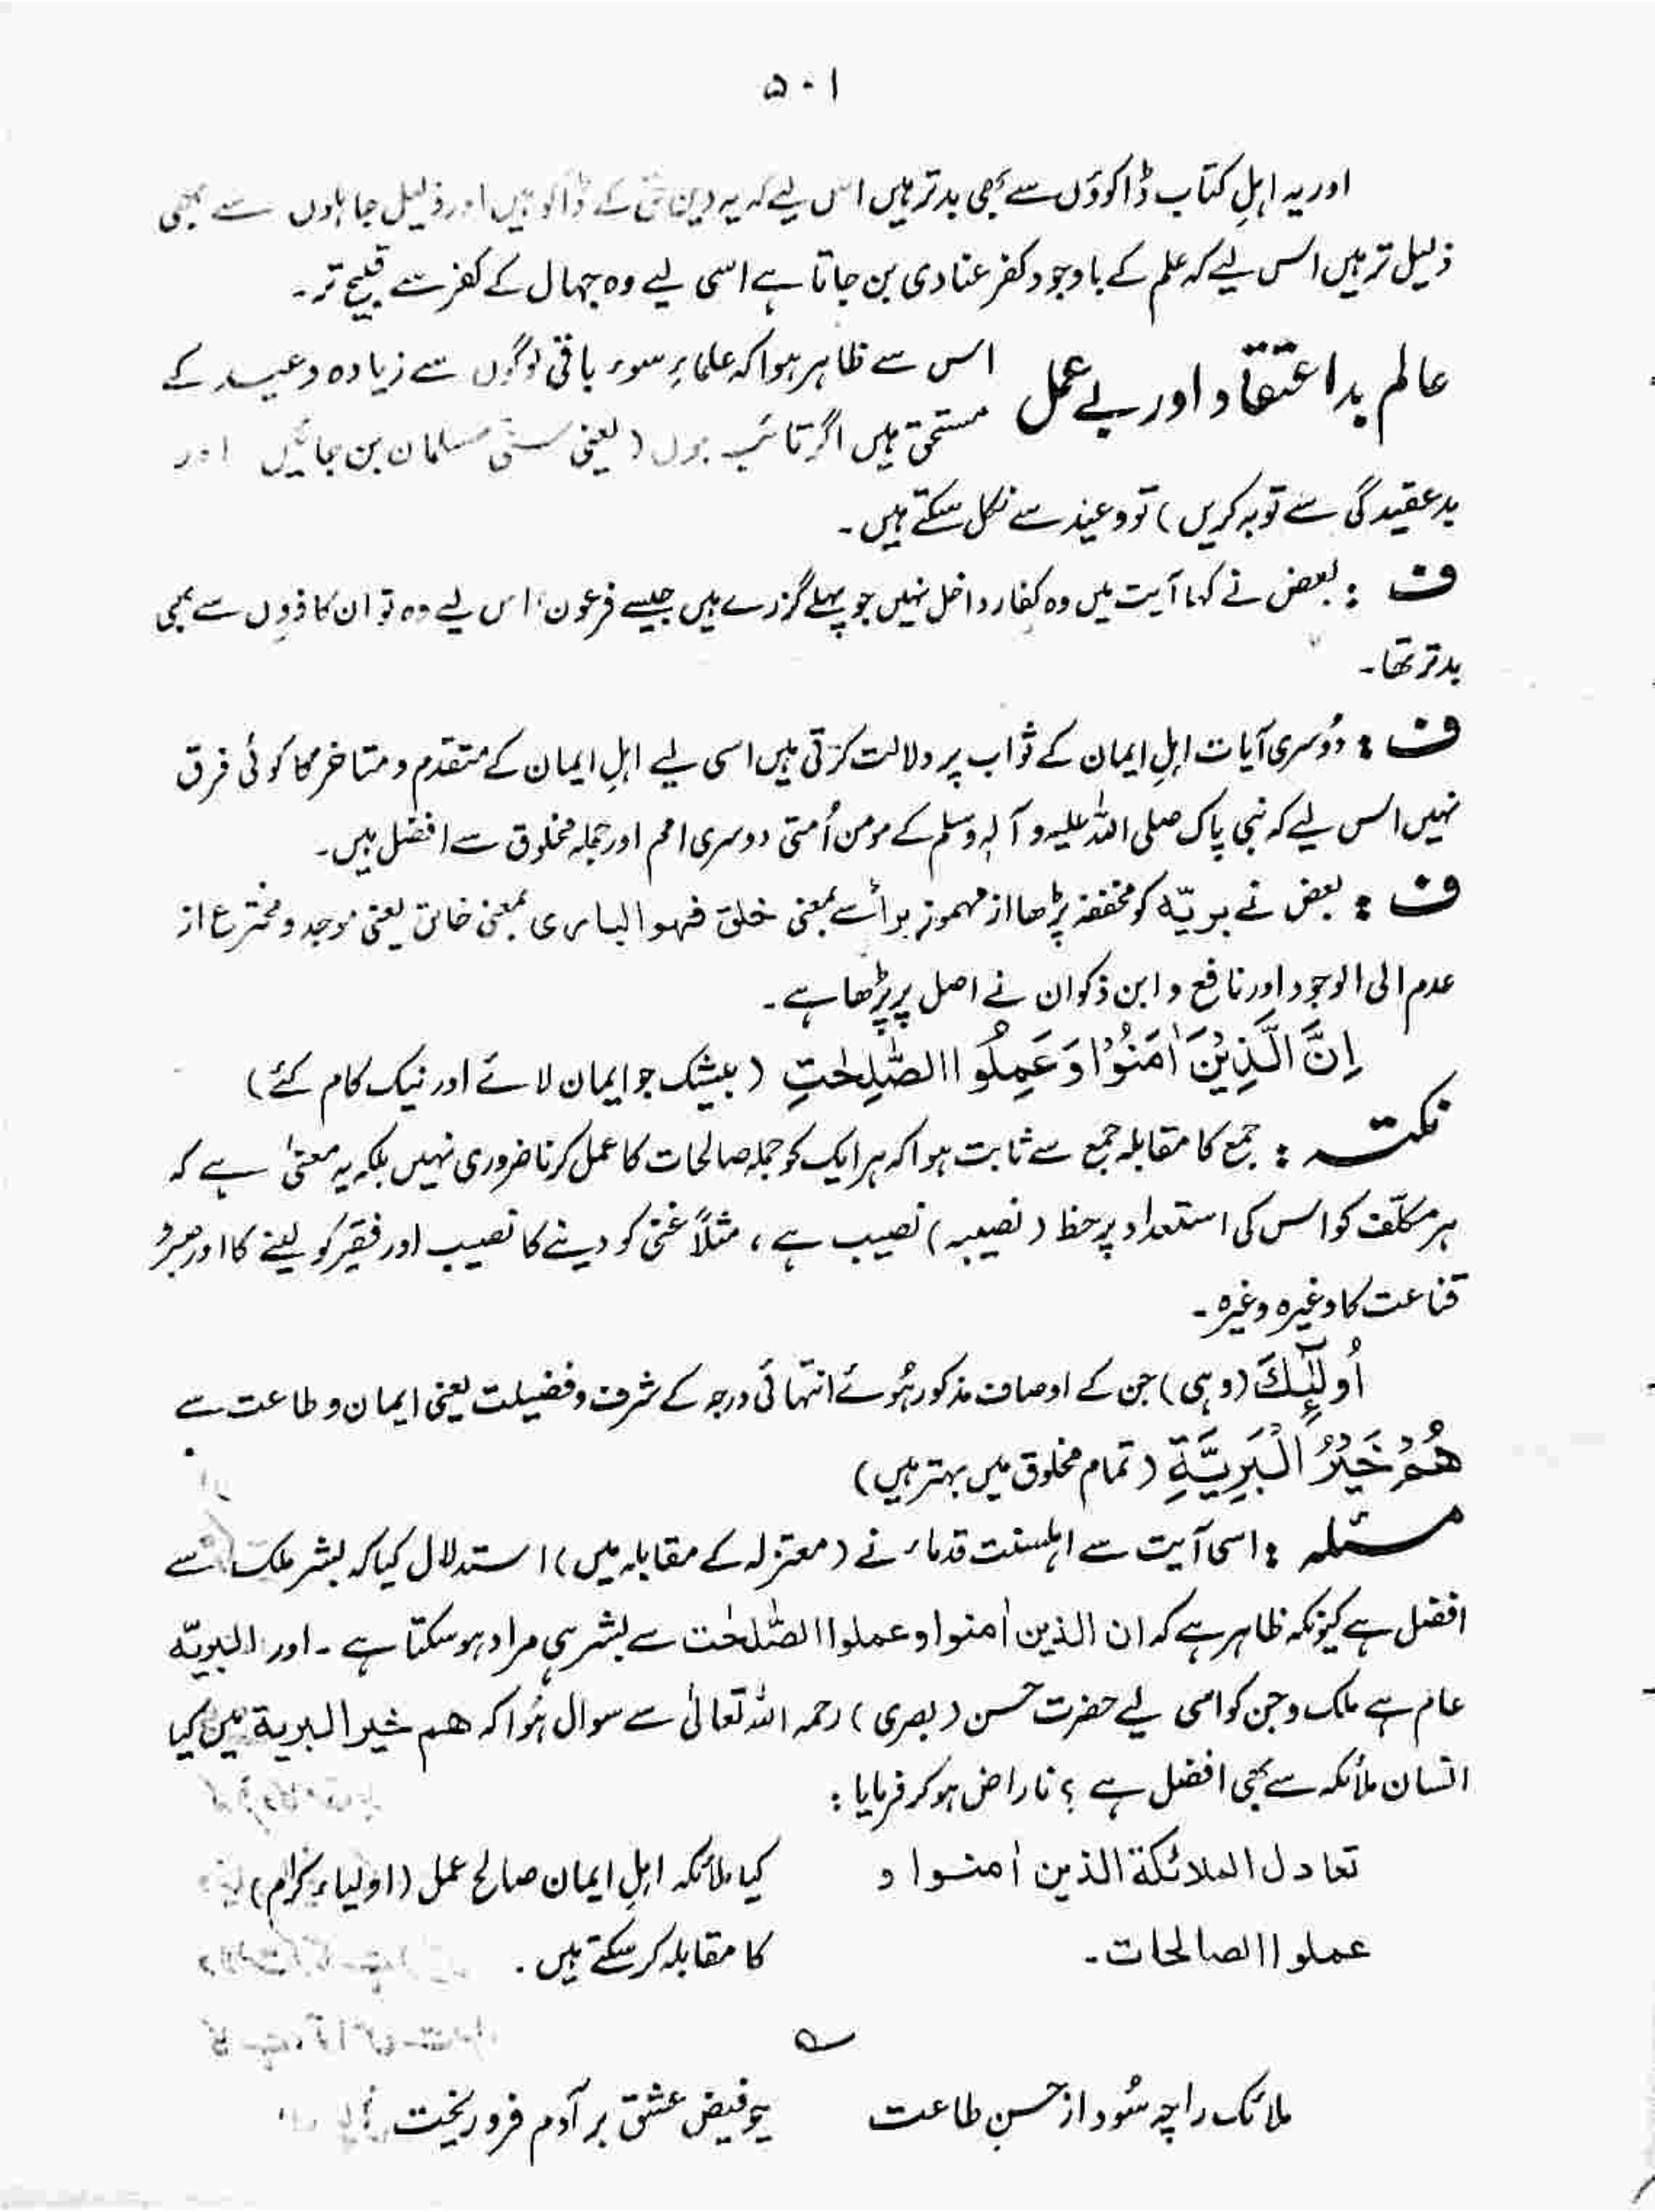 ۵۰۱
اور یہ اہلِ کتاب ڈاکوؤں سے بھی بدتر ہیں اس لیے کہ یہ دین حق کے ڈاکو ہیں اور ذلیل جاہلوں سے بھی
ذلیل تر ہیں اس لیے کہ علم کے باوجود کفر عنادی بن جاتا ہے اسی لیے وہ جہال کے کفر سے قبیح تر۔
عالم بداعتقاد اور بے عمل اس سے ظاہر ہوا کہ علماءِ سوء باقی لوگوں سے زیادہ وعید کے
مستحق ہیں اگر تائب ہوں (یعنی سُنّی مسلمان بن جائیں اور
بدعقیدگی سے توبہ کریں) تو وعید سے نکل سکتے ہیں۔
ف : بعض نے کہا آیت میں وہ کفار داخل نہیں جو پہلے گزرے ہیں جیسے فرعون، اس لیے وہ تو ان کافروں سے بھی
بدتر تھا۔
ف : دُوسری آیات اہلِ ایمان کے ثواب پر دلالت کرتی ہیں اسی لیے اہلِ ایمان کے متقدم و متاخر کا کوئی فرق
نہیں اس لیے کہ نبی پاک صلی اللہ علیہ و آلہ وسلم کے مومن اُمتی دوسری امم اور جملہ مخلوق سے افضل ہیں۔
ف : بعض نے بریّہ کو مخففہ پڑھا از مہموز برأ سے بمعنی خلق فہو الباری بمعنی خالق یعنی موجد و مخترع از
عدم الی الوجود اور نافع و ابن ذکوان نے اصل پر پڑھا ہے۔
اِنَّ الَّذِیْنَ اٰمَنُوْا وَ عَمِلُوا الصّٰلِحٰتِ (بیشک جو ایمان لائے اور نیک کام کئے)
نکتہ : جمع کا مقابلہ جمع سے ثابت ہوا کہ ہر ایک کو جملہ صالحات کا عمل کرنا ضروری نہیں بلکہ یہ معنیٰ ہے کہ
ہر مکلّف کو اس کی استعداد پر حظ (نصیبہ) نصیب ہے، مثلاً غنی کو دینے کا نصیب اور فقیر کو لینے کا اور صبر و
قناعت کا وغیرہ وغیرہ۔
اُولٰٓئِکَ (وہی) جن کے اوصاف مذکور ہُوئے انتہائی درجہ کے شرف و فضیلت یعنی ایمان و طاعت سے
ھُمْ خَیْرُ الْبَرِیَّةِ (تمام مخلوق میں بہتر ہیں)
مسئلہ : اسی آیت سے اہلسنت قدماء نے (معتزلہ کے مقابلہ میں) استدلال کیا کہ بشر ملک سے
افضل ہے کیونکہ ظاہر ہے کہ ان الذین اٰمنوا و عملوا الصّٰلحٰت سے بشر ہی مراد ہو سکتا ہے۔ اور البریّہ
عام ہے ملک و جن کو اسی لیے حضرت حسن (بصری) رحمہ اللہ تعالیٰ سے سوال ہُوا کہ ھم خیر البریة میں کیا
انسان ملائکہ سے بھی افضل ہے؟ ناراض ہو کر فرمایا:
تعادل الملائکة الذین اٰمنوا و کیا ملائکہ اہلِ ایمان صالح عمل (اولیاء کرام)
عملوا الصالحات۔ کا مقابلہ کر سکتے ہیں۔
ملائک را چہ سُود از حسنِ طاعت چو فیض عشق بر آدم فرو ریخت